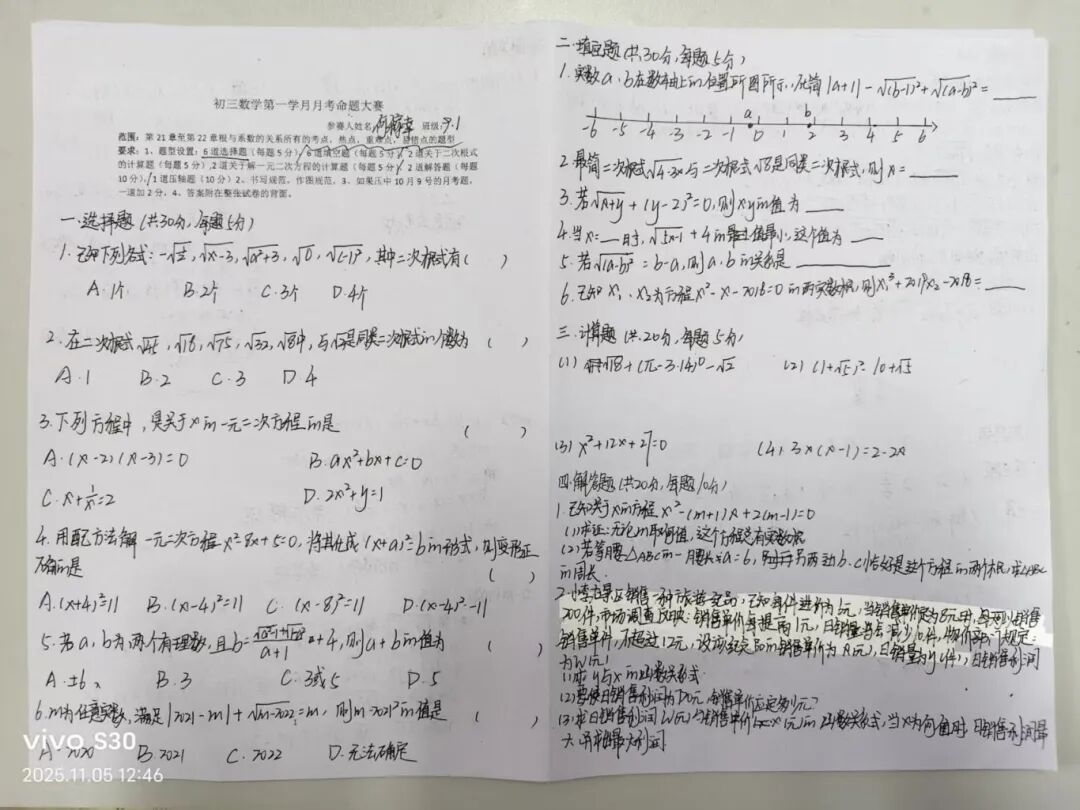 初三数学第一学月月考命题大赛
参赛人姓名 班级:9.1
范围:第21章至第22章根与系数的关系所有的考点,焦点,重难点,易错点的题型
要求:1、题型设置:6道选择题(每题5分),6道填空题(每题5分),2道关于二次根式
的计算题(每题5分),2道关于解一元二次方程的计算题(每题5分),2道解答题(每题
10分),1道压轴题(10分)2、书写规范,作图规范。3、如果压中10月9号的月考题,
一道加2分。4、答案附在整张试卷的背面。
一.选择题(共30分,每题5分)
1.已知下列各式:-√2,√x-3,√a²+3,√0,√(-1)²,其中二次根式有( )
A.1个 B.2个 C.3个 D.4个
2.在二次根式 √18,√75,√32,√8中,与√2是同类二次根式的个数为( )
A.1 B.2 C.3 D.4
3.下列方程中,是关于x的一元二次方程的是 ( )
A.(x-2)(x-3)=0 B.ax²+bx+c=0
C.x+1/x=2 D.2x²+y=1
4.用配方法解一元二次方程x²-8x+5=0,将其化成(x+a)²=b的形式,则变形正
确的是 ( )
A.(x+4)²=11 B.(x-4)²=11 C.(x-8)²=11 D.(x-4)²=-11
5.若a,b为两个有理数,且b= +4,则a+b的值为 ( )
A.±6 B.3 C.3或5 D.5
6.m为任意实数,满足|2021-m|+√m-2022=m,则m-2021²的值是 ( )
A.2020 B.2021 C.2022 D.无法确定
二.填空题(共30分,每题5分)
1.实数a,b在数轴上的位置所图所示,化简|a+1|-√(b-1)²+√(a-b)²=____
a b
-6 -5 -4 -3 -2 -1 0 1 2 3 4 5 6
2.最简二次根式√4-3x与二次根式√8是同类二次根式,则x=____
3.若√x+y+(y-2)²=0,则xy的值为____
4.当x=__时,√5x-1+4的最值最小,这个值为__
5.若√(a-b)²=b-a,则a,b的关系是____
6.已知x₁,x₂为方程x²-x-2018=0的两实数根,则x₁³+2019x₂-2018=____
三.计算题(共20分,每题5分)
(1)√8+(π-3.14)⁰-√2 (2)(1+√5)²-10+√5
(3)x²+12x+27=0 (4)3x(x-1)=2-2x
四.解答题(共20分,每题10分)
1.已知关于x的方程x²-(m+1)x+2(m-1)=0
(1)求证:无论m取何值,这个方程总有实数根
(2)若等腰△ABC的一腰长a=6,另两边b.c恰好是这个方程的两个根,求△ABC
的周长.
2. 景区销售一种 已知每件进价为6元,当销售单价定为8元时,每天可以销售
200件,市场调查反映:销售单价每提高1元,日销量将会减少10件,物价部门规定:
销售单价不超过12元,设该 的销售单价为x元,日销量为y件,日销售利润
为W元
(1)求y与x的函数关系式
(2)要使日销售利润为 元,销售单价应定为多少元?
(3)求日销售利润W元与销售单价x元的函数关系式,当x为何值时,日销售利润最
大,并求最大利润
vivo S30
2025.11.05 12:46